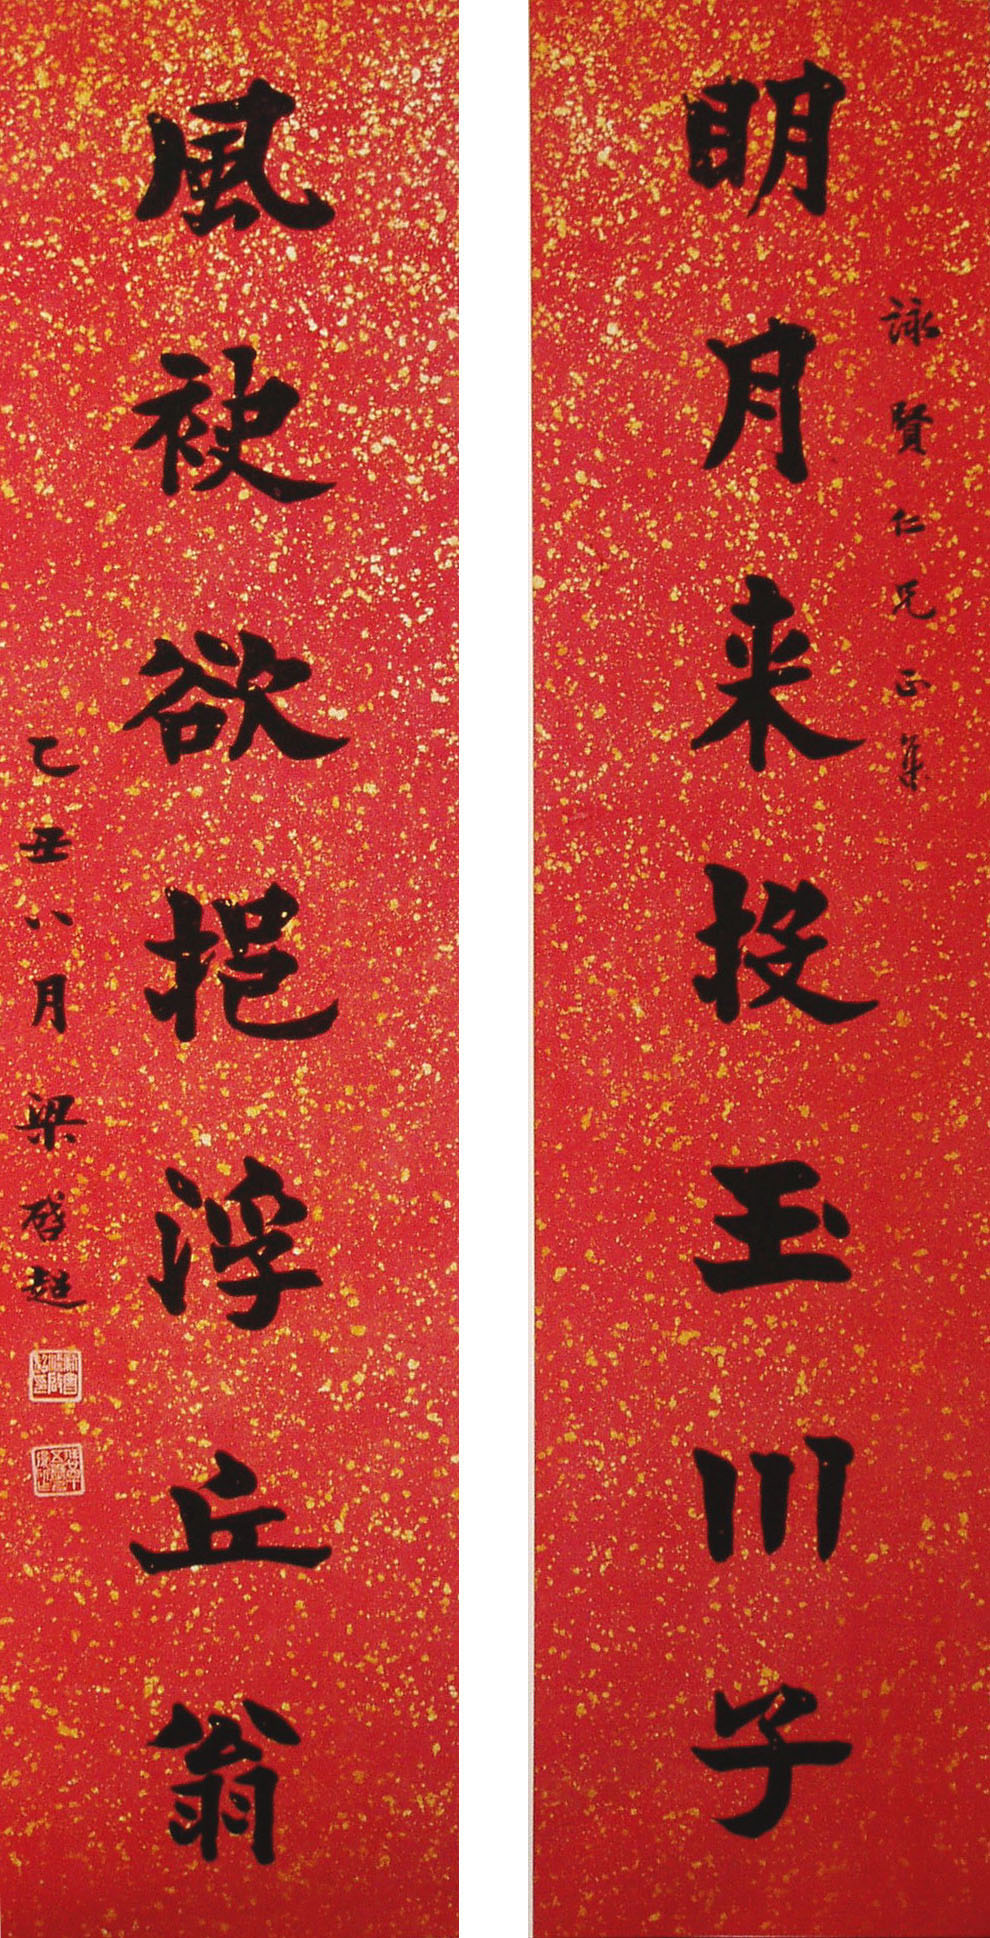 詠賢仁兄正集
明月来投玉川子
風袂欲挹浮丘翁
乙丑八月梁啓超